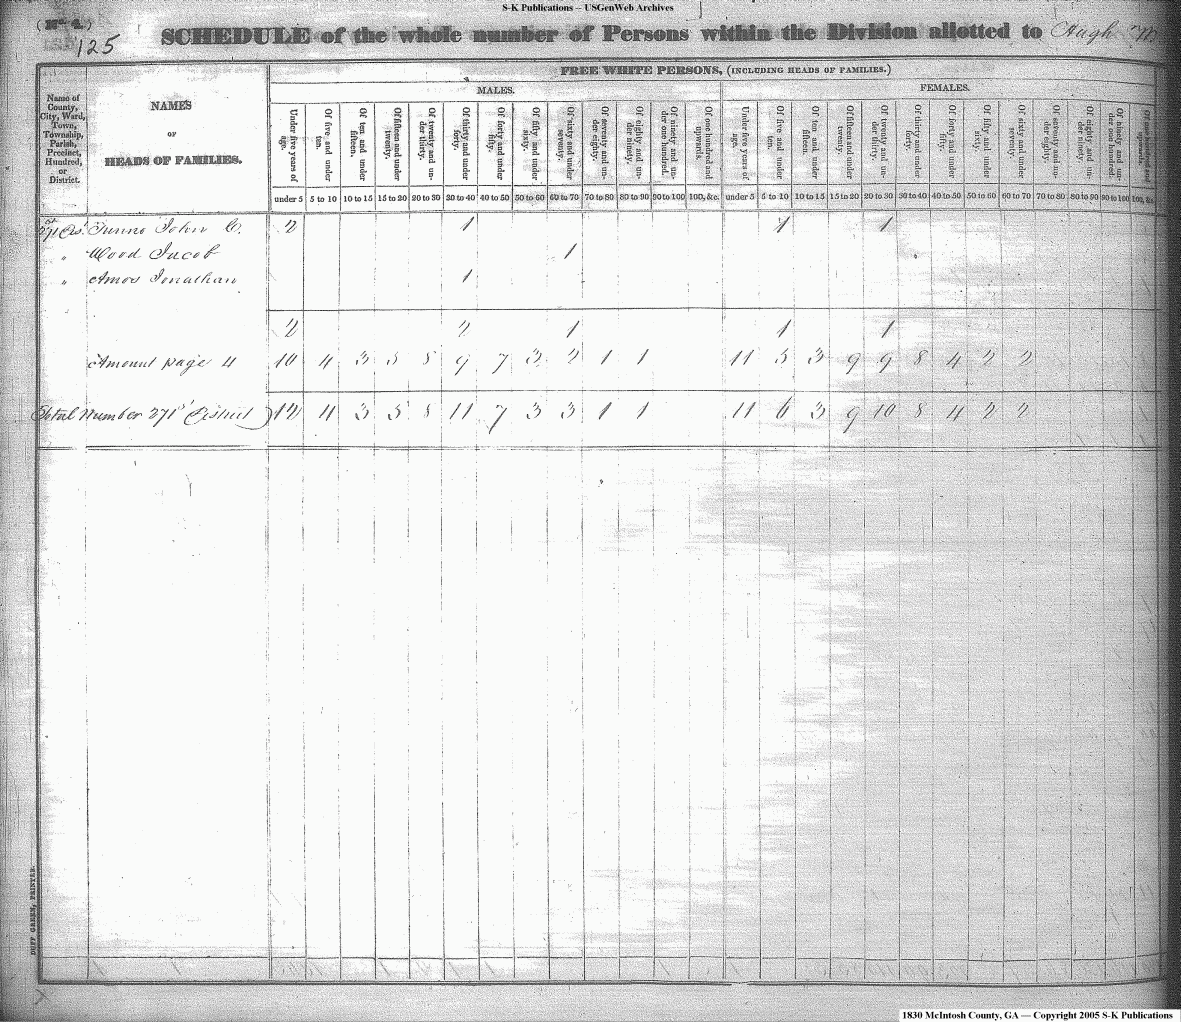 S-K Publications – USGenWeb Archives
(No. 4.)
125
SCHEDULE of the whole number of Persons within the Division allotted to Hugh
FREE WHITE PERSONS, (INCLUDING HEADS OF FAMILIES.)
MALES. FEMALES.
Name of County, City, Ward, Town, Township, Parish, Precinct, Hundred, or District.
NAMES
OF
HEADS OF FAMILIES.
Under five years of age. Of five and under ten. Of ten and under fifteen. Of fifteen and under twenty. Of twenty and under thirty. Of thirty and under forty. Of forty and under fifty. Of fifty and under sixty. Of sixty and under seventy. Of seventy and under eighty. Of eighty and under ninety. Of ninety and under one hundred. Of one hundred and upwards. Under five years of age. Of five and under ten. Of ten and under fifteen. Of fifteen and under twenty. Of twenty and under thirty. Of thirty and under forty. Of forty and under fifty. Of fifty and under sixty. Of sixty and under seventy. Of seventy and under eighty. Of eighty and under ninety. Of ninety and under one hundred. Of one hundred and upwards.
under 5 5 to 10 10 to 15 15 to 20 20 to 30 30 to 40 40 to 50 50 to 60 60 to 70 70 to 80 80 to 90 90 to 100 100, &c. under 5 5 to 10 10 to 15 15 to 20 20 to 30 30 to 40 40 to 50 50 to 60 60 to 70 70 to 80 80 to 90 90 to 100 100, &c.
John C. 2 1 1 1
" Wood Jacob 1
" Amos Jonathan 1
2 2 1 1 1
Amount page 4 10 4 3 5 8 9 7 3 2 1 1 11 5 3 9 9 8 4 2 2
Total Number 271st District 12 4 3 5 8 11 7 3 3 1 1 11 6 3 9 10 8 4 2 2
DUFF GREEN, PRINTER.
1830 McIntosh County, GA — Copyright 2005 S-K Publications